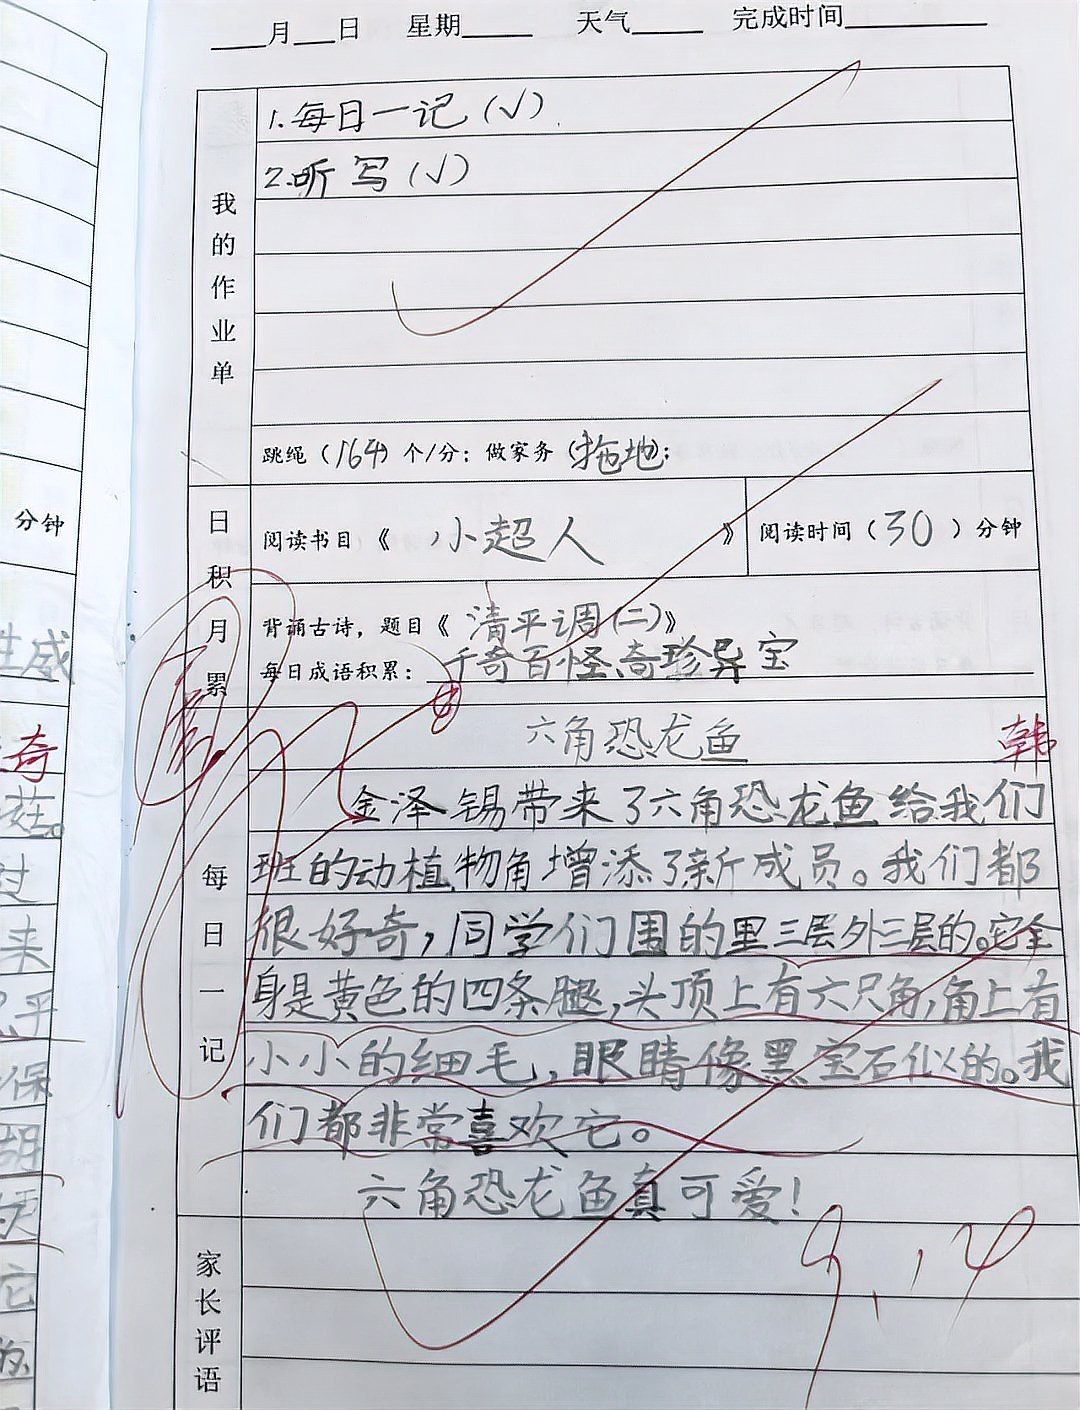 ___月___日 星期____ 天气____ 完成时间________
我的作业单
1.每日一记(√)
2.听写(√)
跳绳(164)个/分；做家务(拖地)；
日积月累
阅读书目《小超人》 阅读时间(30)分钟
背诵古诗，题目《清平调(二)》
每日成语积累：千奇百怪、奇珍异宝
每日一记
六角恐龙鱼
韩
金泽锡带来了六角恐龙鱼给我们
班的动植物角增添了新成员。我们都
很好奇，同学们围的里三层外三层的。它全
身是黄色的四条腿，头顶上有六只角，角上有
小小的细毛，眼睛像黑宝石似的。我
们都非常喜欢它。
六角恐龙鱼真可爱！
9.14
家长评语
分钟
威
奇
过
来
平
保
胡
它